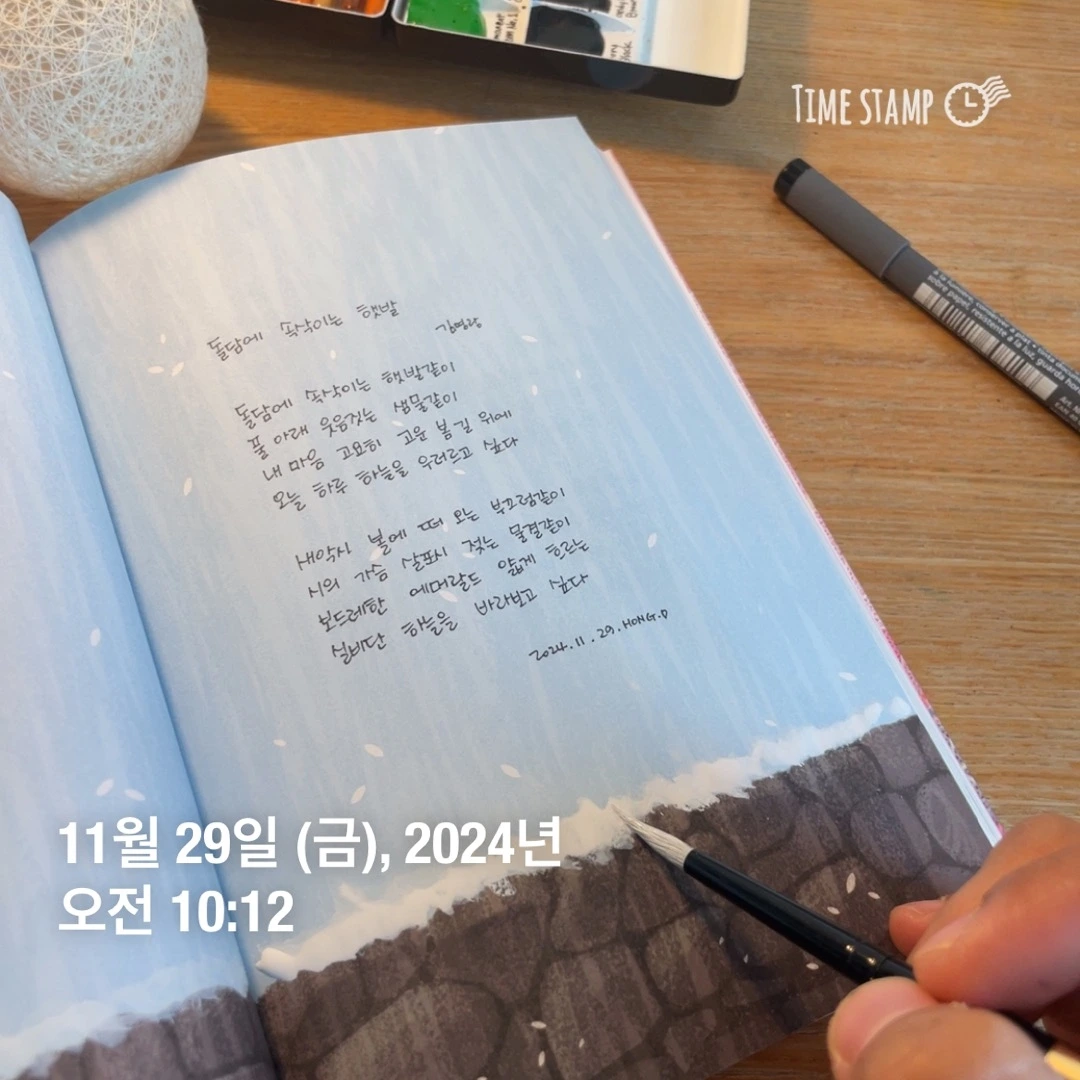 TIME STAMP
돌담에 속삭이는 햇발
김영랑
돌담에 속삭이는 햇발같이
풀 아래 웃음짓는 샘물같이
내 마음 고요히 고운 봄 길 위에
오늘 하루 하늘을 우러르고 싶다
새악시 볼에 떠 오는 부끄럼같이
시의 가슴 살포시 젖는 물결같이
보드레한 에메랄드 얇게 흐르는
실비단 하늘을 바라보고 싶다
2024.11.29.HONG.D
à la lumière,
sobre papel, resistente a la luz, guarda
11월 29일 (금), 2024년
오전 10:12